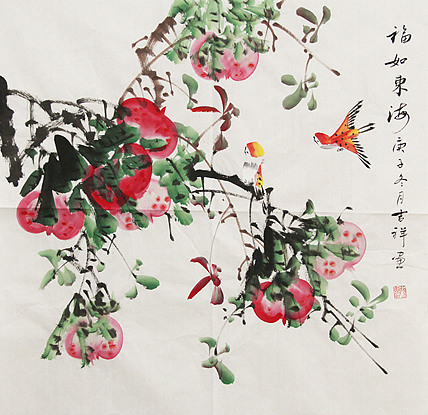 福如東海庚子冬月吉祥畫